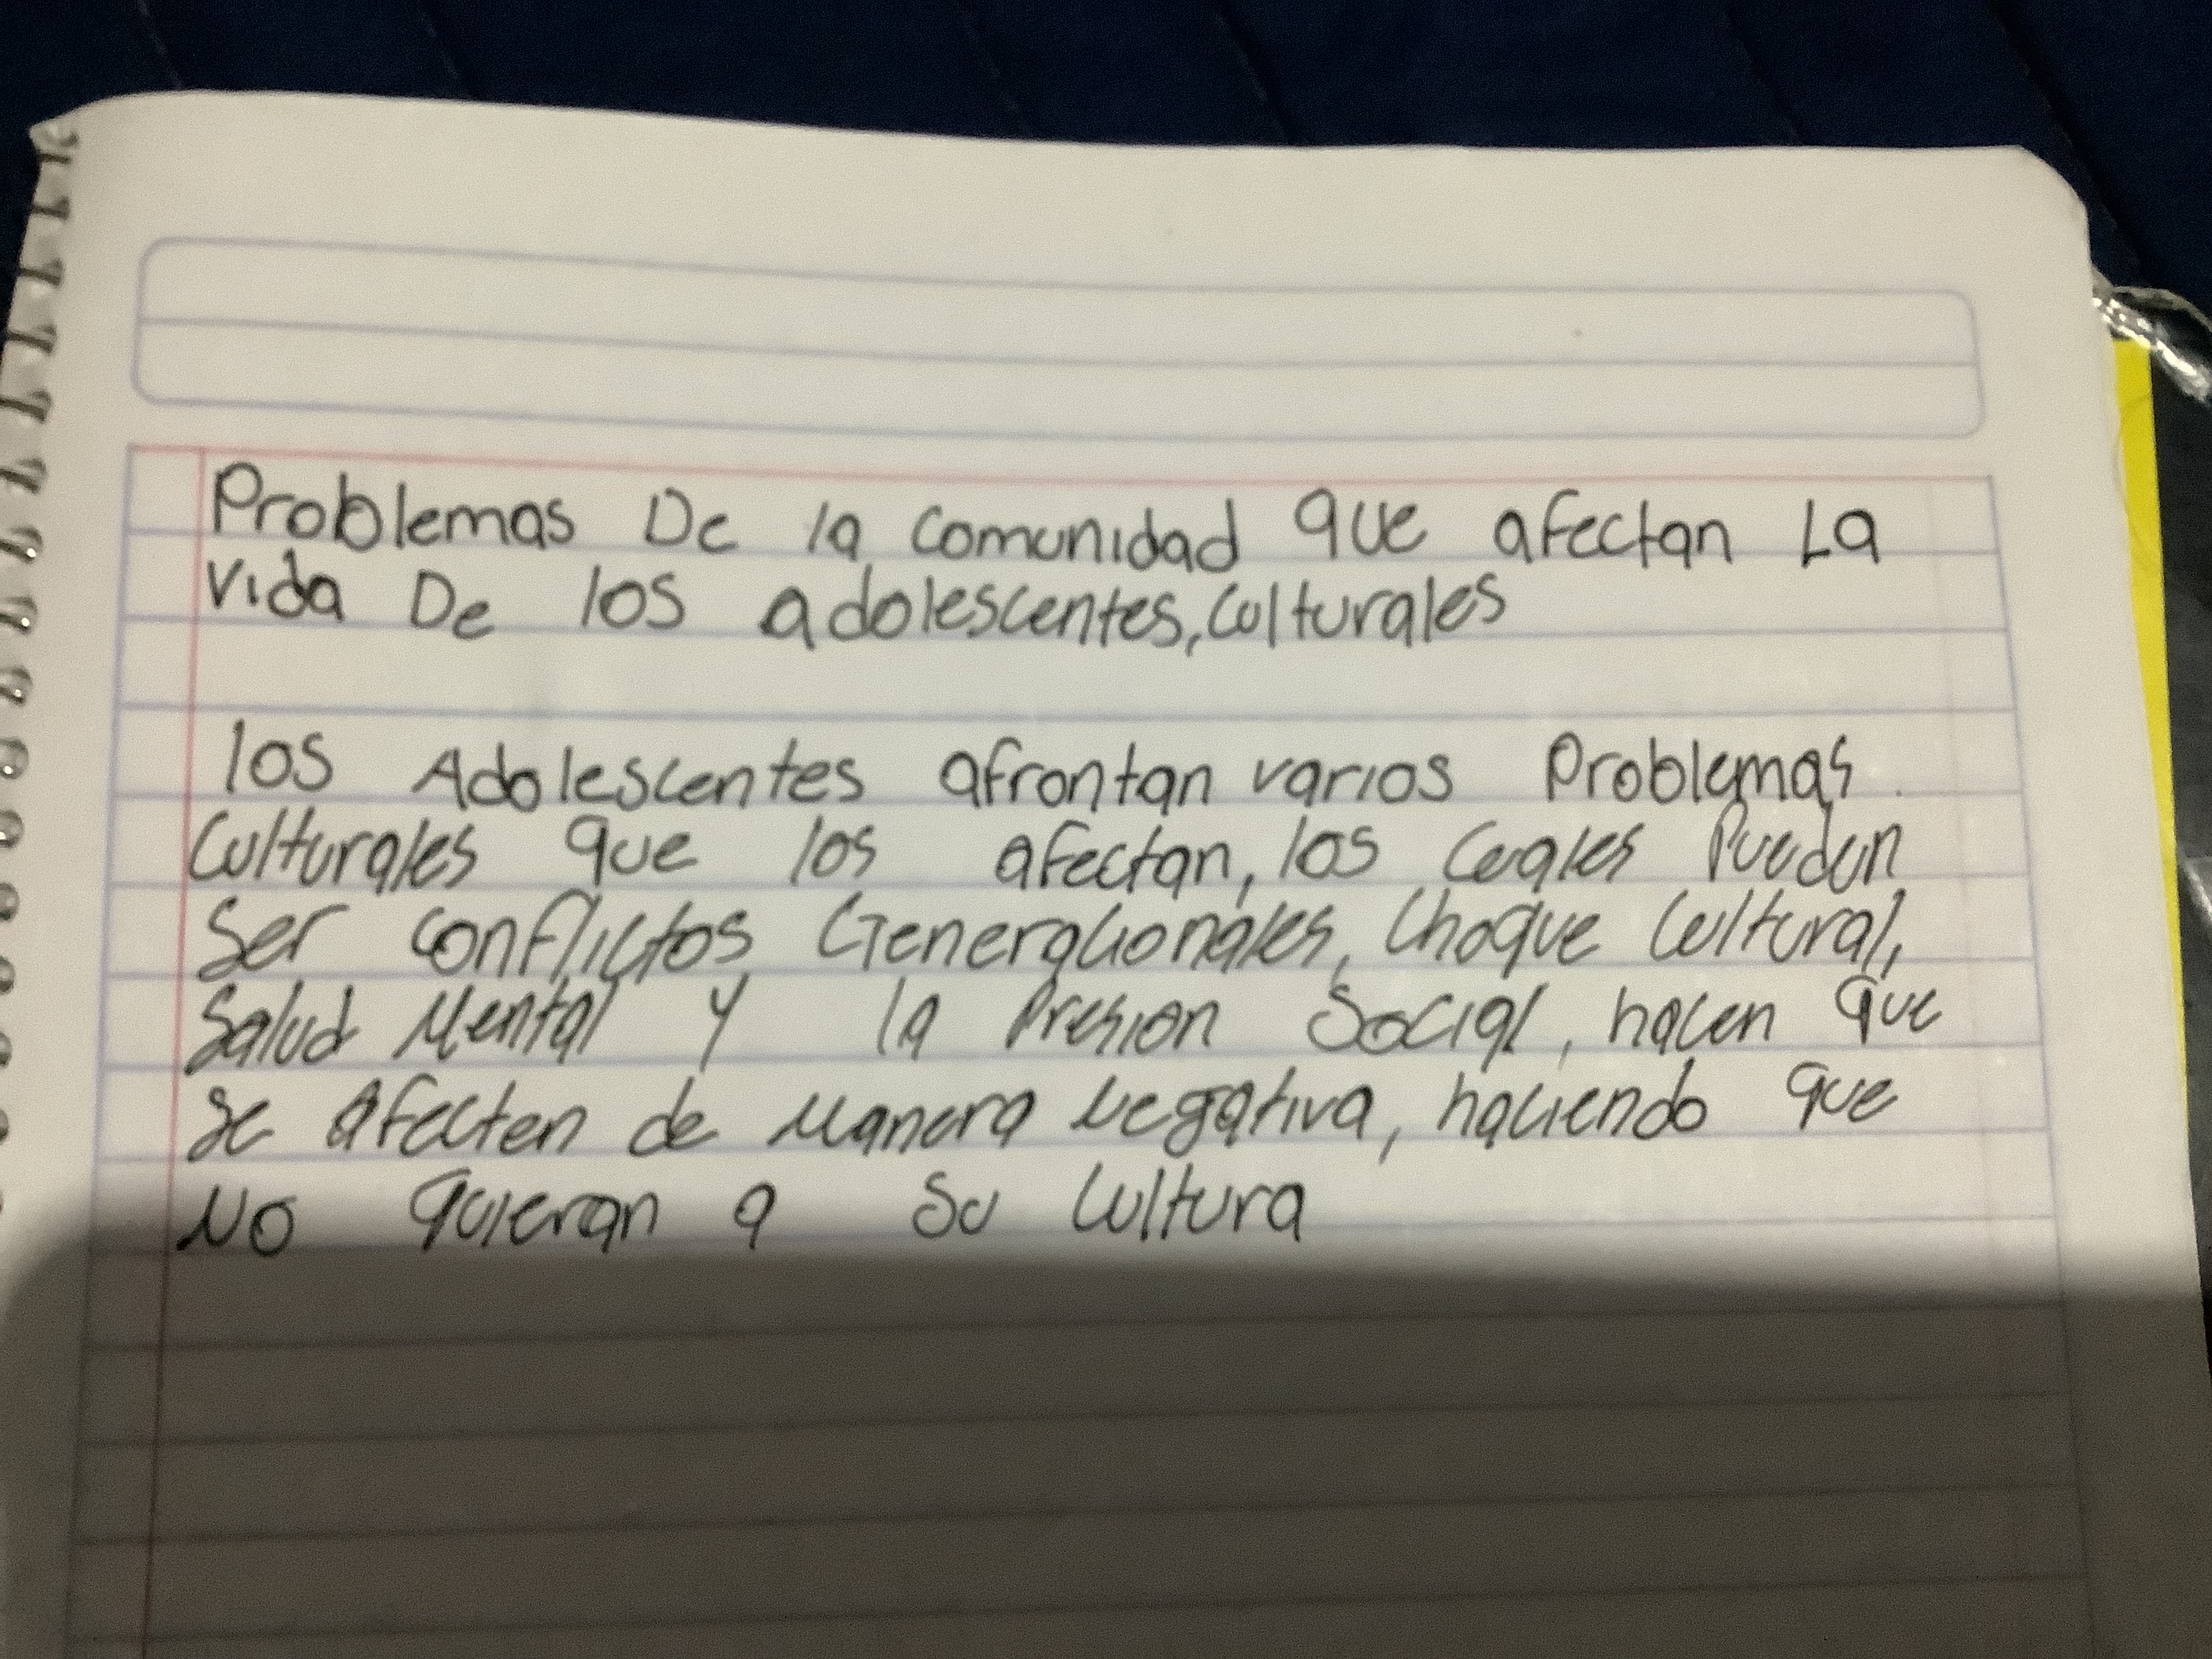 Problemas De la comunidad que afectan La
vida De los adolescentes, Culturales
los Adolescentes afrontan varios Problemas
Culturales que los afectan, los Cuales Pueden
Ser conflictos Generacionales, Choque Cultural,
Salud Mental y la Presion Social, hacen que
se Afecten de Manera Negativa, haciendo que
No quieran a Su Cultura